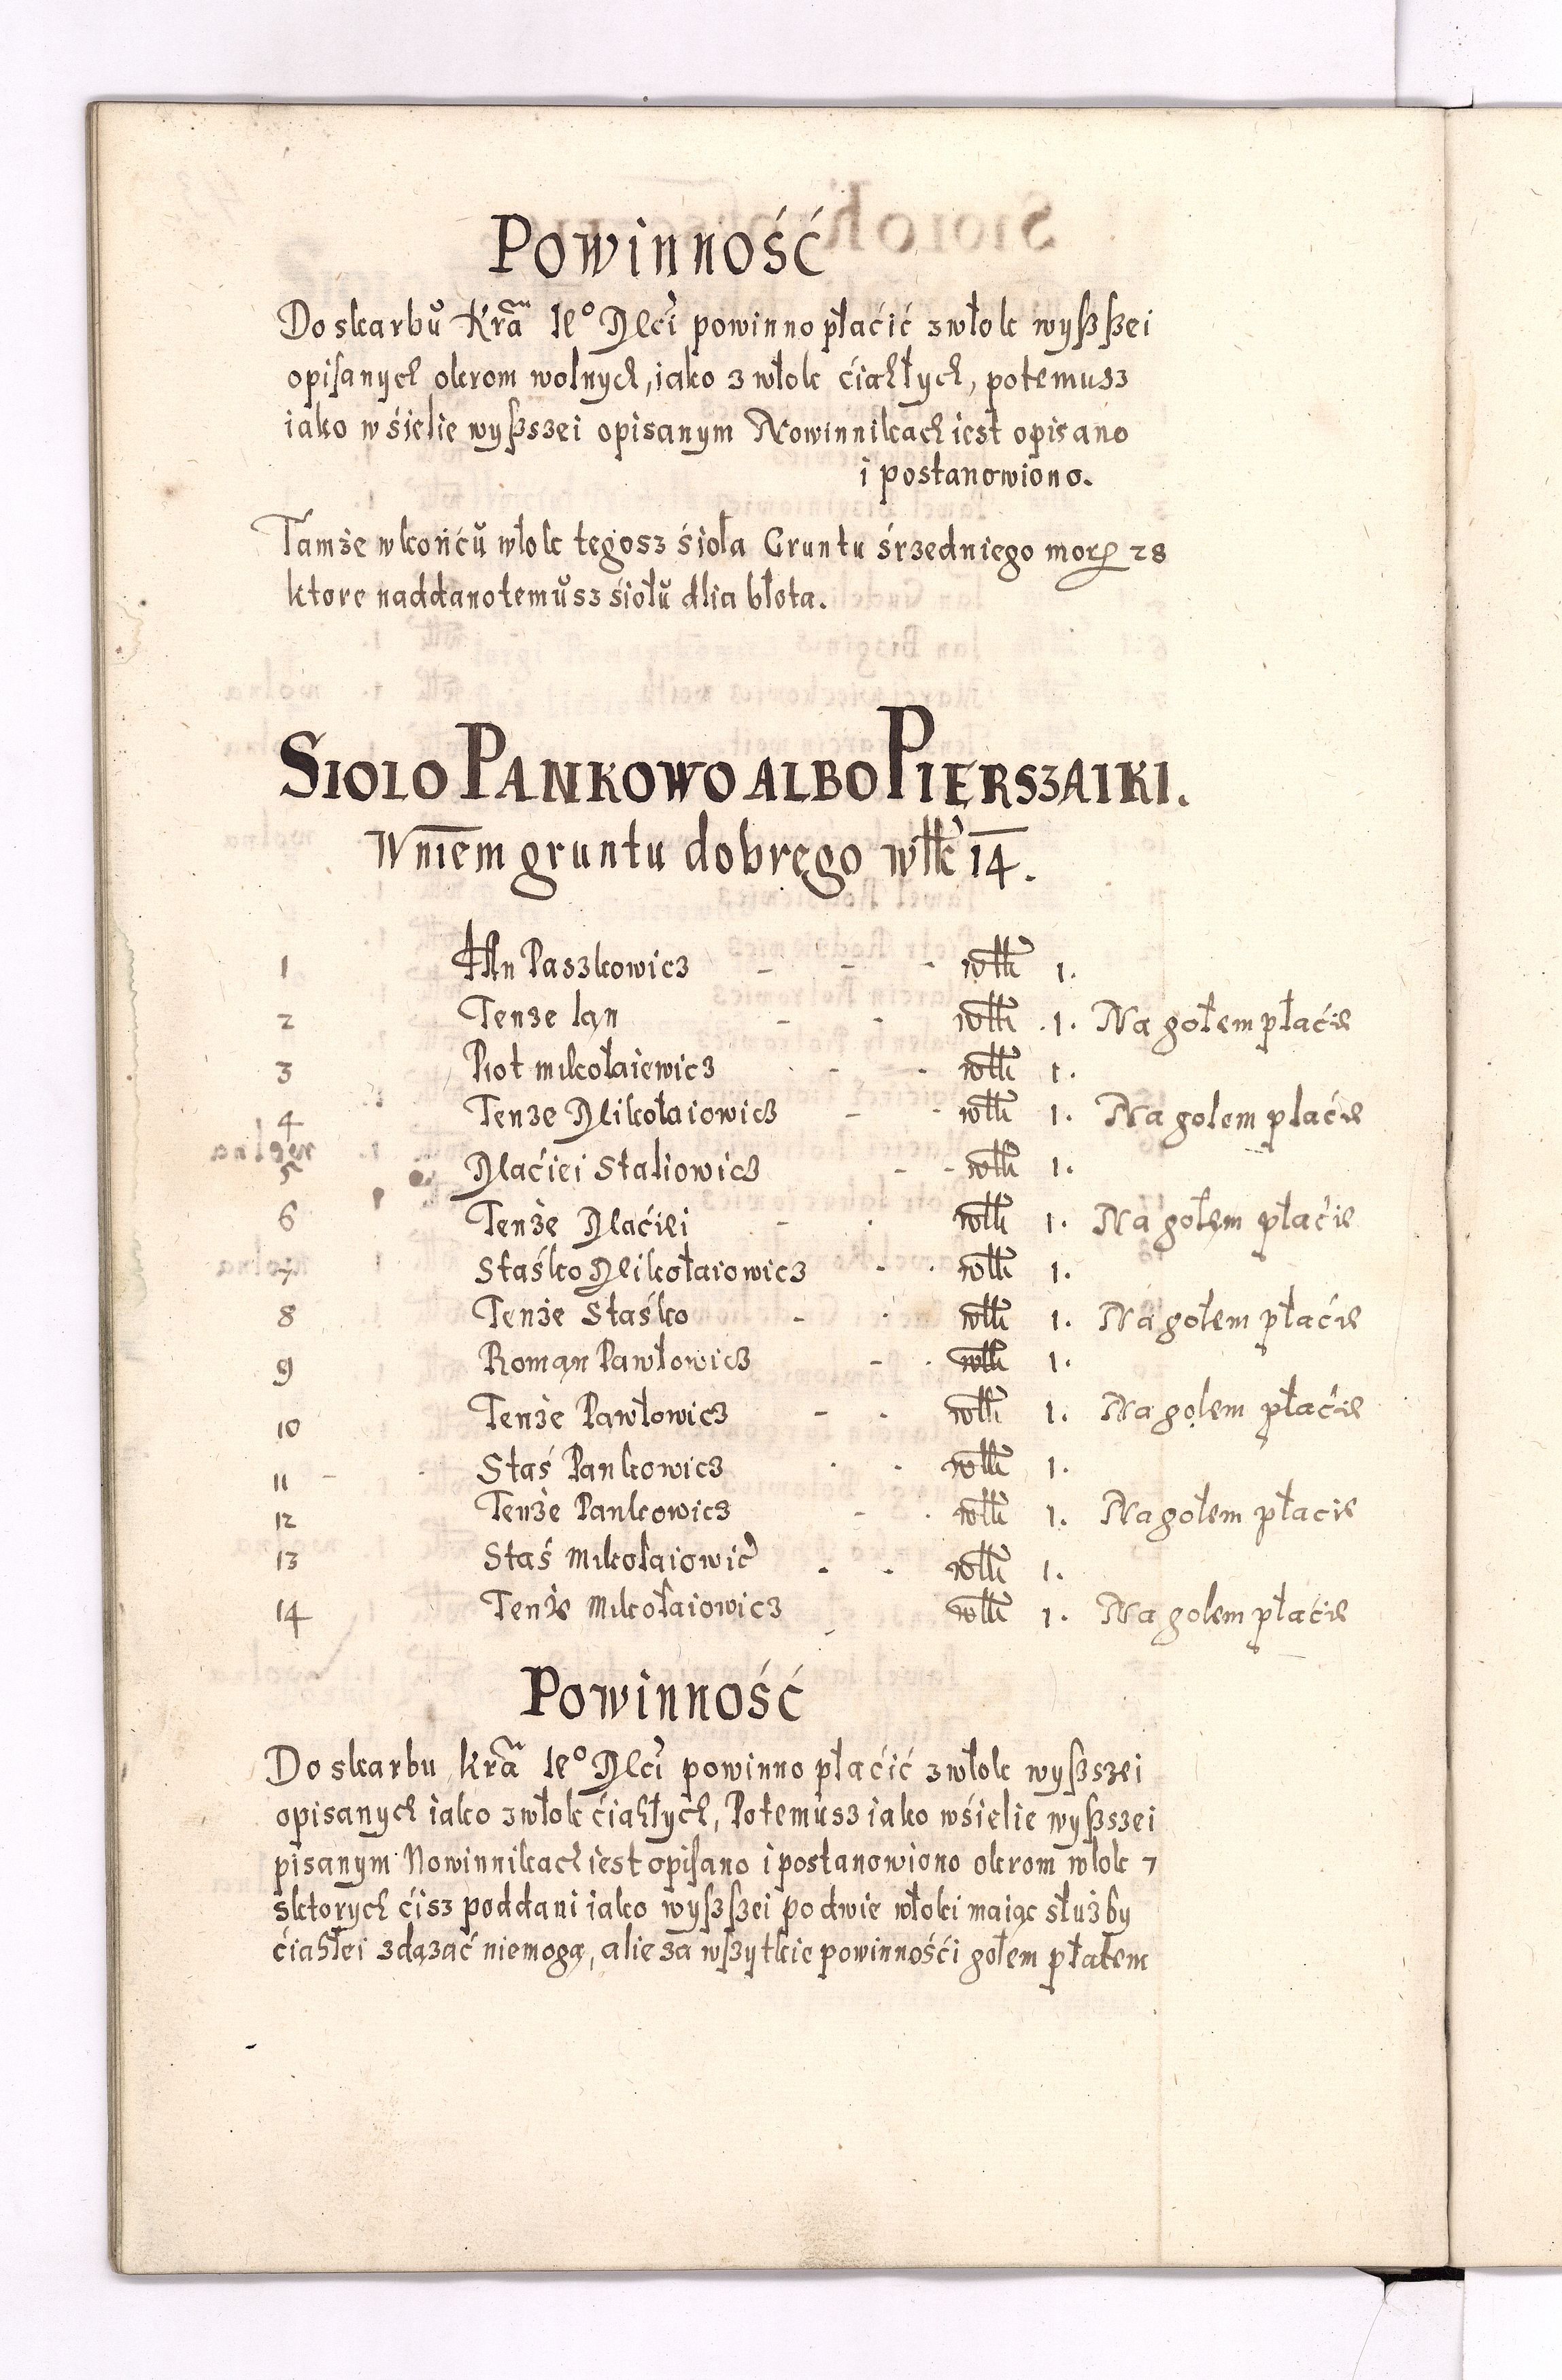 Powinność
Do skarbů Kra͠ Ie° Mci powinno płaćić z włok wyßßei
opiſanych okrom wolnych, iako z włok ćiahłych, potemusz
iako w śielie wyßszei opisanym Nowinnikach iest opisano
i postanowiono.
Tamże w końců włok tegosz śioła Gruntu śrzedniego morg 28
ktore naddano temůsz śiołů dlia błota.
SIOLO PANKOWO ALBO PIERSZAIKI.
W niem gruntu dobrego włk 14.
1 Paszkowicz - - - włk 1.
2 Tenże Ian - - włk .1. Na gołem płaćie
3 Piot mikołaiewicz - - włk 1.
4 Tenże Mikołaiowicz - - włk 1. Na golem płaćie
5 Maćiei Staliowicz - - włk 1.
6 Tenże Maćiei - . włk 1. Na gołem płaćie
7 Staśko Mikołaiowicz . . włk 1.
8 Tenże Staśko - . włk 1. Na gołem płaćie
9 Roman Pawłowicz - . włk 1.
10 Tenże Pawłowicz - . włk 1. Na golem płaćie
11 - . Staś Pankowicz . . włk 1.
12 Tenże Pankowicz - . włk 1. Na gołem płacie
13 Staś Mikołaiowic . . włk 1.
14 Tenże Mikołaiowicz - włk 1. Na golem płaćie
Powinność
Do skarbu Kra͠ Ie° Mci powinno płaćić z włok wyßszei
opisanych iako z włok ćiahłych, Potemusz iako w śielie wyßszei
pisanym Nowinnikach iest opiſano i postanowiono okrom włok 7
s ktorych ćisz poddani iako wyßßei po dwie włoki maiąc służby
ćiahłei zdązać niemogą, alie za wßzytkie powinnośći gołem płatem